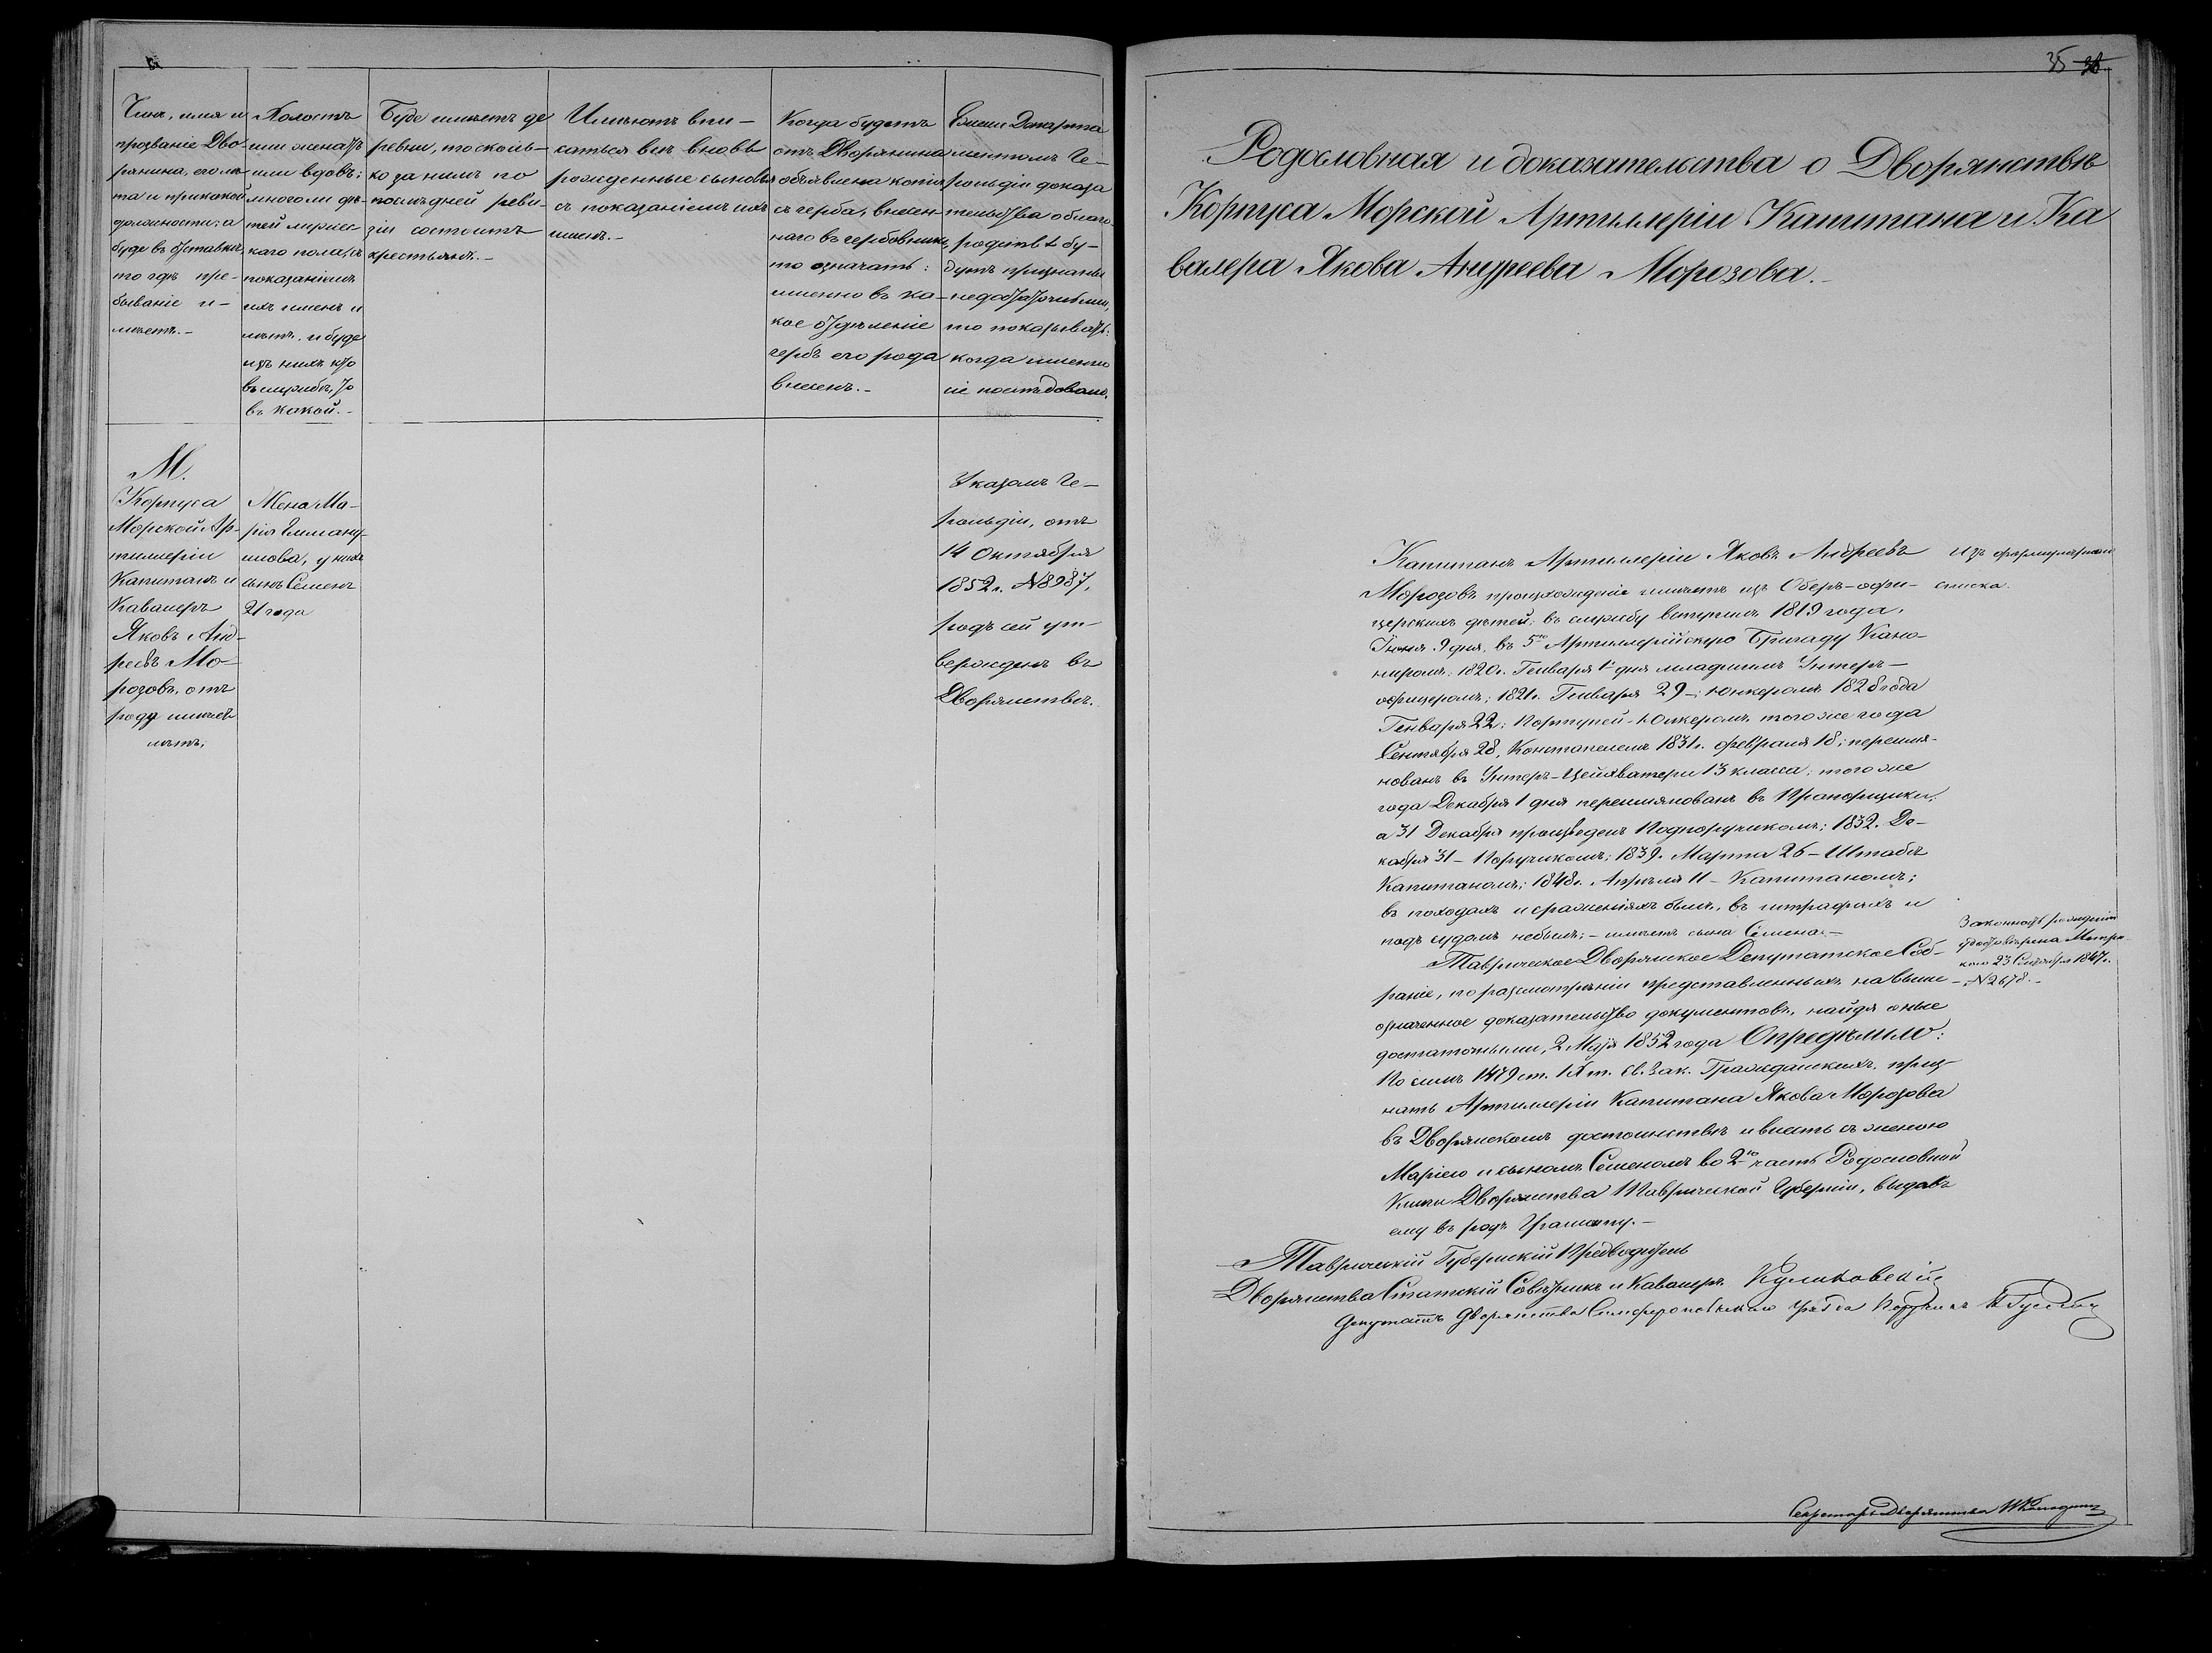 Чинъ, имя и
прозваніе Дво-
рянина, его лѣ
та и при какой
должности; а
буде въ отставкѣ,
то гдѣ пре-
бываніе и-
мѣетъ.-
Холостъ
или женатъ
или вдовъ;
много ли дѣ-
тей мужес-
каго пола, съ
показаніемъ
ихъ именъ и
лѣтъ, и буде
изъ нихъ кто
въ службѣ, то
въ какой.-
Буде имѣетъ де
ревни, то сколь-
ко за нимъ по
послѣдней реви-
зіи состоитъ
крестьянъ.-
Имѣютъ впи-
саться вновь
рожденные сыновья
съ показаніемъ ихъ
именъ.-
Когда будетъ
отъ Дворянина
объявлена копія
съ герба, внесен
наго въ гербовникъ,
то означать:
именно въ ка-
кое отдѣленіе
гербъ его рода
внесенъ.-
Ежели Департа
ментомъ Ге-
рольдіи доказа
тельства о благо-
родствѣ бу-
дутъ признаны
недостаточными,
то показывать:
когда именно
сіе послѣдовало.
М.
Корпуса
Морской Ар-
тиллеріи
Капитанъ и
Кавалеръ
Яковъ Анд-
реевъ Мо-
розовъ, отъ
роду имѣетъ
лѣтъ;
Жена Ма-
рія Емману-
илова, у нихъ
сынъ Семенъ
21 года
Указомъ Ге-
рольдіи, отъ
14 Октября
1852 г. №8987,
родъ сей ут-
вержденъ въ
Дворянствѣ.
35 38
Родословная и доказательства о Дворянствѣ
Корпуса Морской Артиллеріи Капитана и Ка
валера Якова Андреева Морозова.-
Капитанъ Артиллеріи Яковъ Андреевъ
Морозовъ происхожденіе имѣетъ изъ Оберъ-офи-
церскихъ дѣтей; въ службу вступилъ 1819 года,
Іюня 9 дня, въ 5ю Артиллерійскую Бригаду Кано-
ниромъ; 1820 г. Генваря 1 дня младшимъ Унтеръ-
офицеромъ; 1821 г. Генваря 29-; Юнкеромъ 1828 года
Генваря 22; Портупей-Юнкеромъ того же года
Сентября 28, Констапелемъ 1831 г. февраля 18; переиме-
нованъ въ Унтеръ-Цейхватеры 13 класса; того же
года Декабря 1 дня переименованъ въ Прапорщики,
а 31 Декабря произведенъ Подпоручикомъ; 1832. Де-
кабря 31- Поручикомъ; 1839. Марта 26 - Штабсъ
Капитаномъ; 1848 г. Апрѣля 11 - Капитаномъ;
въ походахъ и сраженіяхъ былъ, въ штрафахъ и
подъ судомъ небылъ; - имѣетъ сына Семена.-
Таврическое Дворянское Депутатское Соб-
раніе, по разсмотрѣніи представленныхъ на выше-
означенное доказательство документовъ, найдя оные
достаточными, 2 Мая 1852 года Опредѣлило:
По силѣ 1479 ст. IX т. Св. Зак. Гражданскихъ, приз-
нать Артиллеріи Капитана Якова Морозова
въ Дворянскомъ достоинствѣ и внесть съ женою
Маріею и сыномъ Семеномъ во 2ю часть Родословной
Книги Дворянства Таврической Губерніи, выдавъ
ему въ родъ Грамоту.-
Изъ формулярнаго
списка.
Законность рожденія
удостовѣрена Метри-
кою 23 Сентября 1847 г.
№2678.-
Таврическій Губернскій Предводитель
Дворянства Статскій Совѣтникъ и Кавалеръ Куликовскій
Депутатъ Дворянства Симферопольскаго уѣзда Поручикъ
Секретарь Дворянства